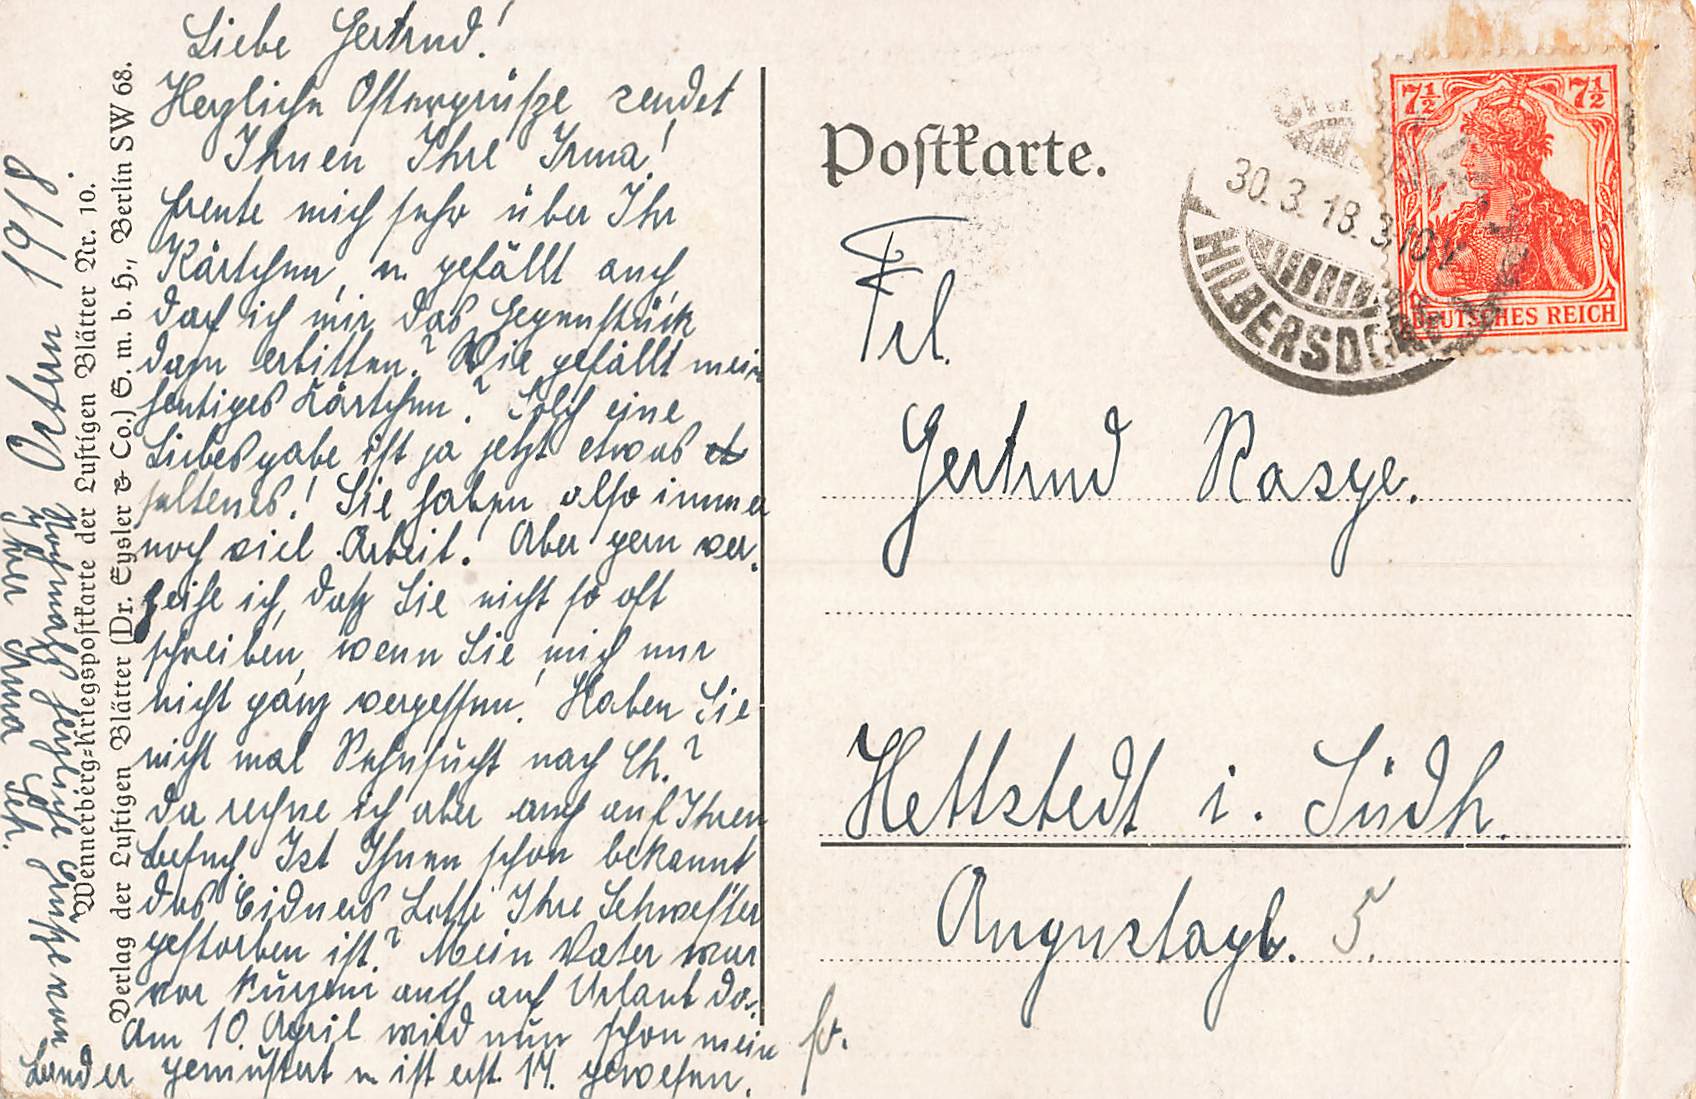 Liebe Gertrud!
Herzliche Ostergrüße sendet
Ihnen Ihre Irma!
freute mich sehr über Ihr
Kärtchen, u. gefällt auch,
darf ich mir das Gegenstück
dazu erbitten? Wie gefällt mein
heutiges Kärtchen? Solch eine
Liebesgabe ist ja jetzt etwas
seltenes! Sie haben also immer
noch viel Arbeit! Aber gern ver-
zeihe ich, daß Sie nicht so oft
schreiben, wenn Sie mich nur
nicht ganz vergessen! Haben Sie
nicht mal Sehnsucht nach Ch.?
Da rechne ich aber auch auf Ihren
Besuch. Ist Ihnen schon bekannt
das Eidners Lotte Ihre Schwester
gestorben ist? Mein Vater war
vor kurzem auch auf Urlaub da.
Am 10. April wird nun schon mein
Bruder gemustert u. ist erst 17. gewesen.
Ostern 1918.
Nochmals herzliche Grüße von
Ihrer Irma Sch.
Wennerberg-Kriegspostkarte der Lustigen Blätter Nr. 10.
Verlag der Lustigen Blätter (Dr. Eysler & Co.) G. m. b. H., Berlin SW 68.
Postkarte.
7½ 7½
DEUTSCHES REICH
30.3.18. 3
HILBERSDORF
Frl.
Gertrud Rasge.
Hettstedt i. Südh.
Augustagb. 5.
fr.